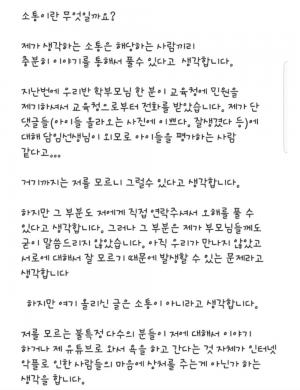 소통이란 무엇일까요?
제가 생각하는 소통은 해당하는 사람끼리
충분히 이야기를 통해서 풀수 있다고 생각합니다.
지난번에 우리반 학부모님 한 분이 교육청에 민원을
제기하셔서 교육청으로부터 전화를 받았습니다. 제가 단
댓글들(아이들 올라오는 사진에 이쁘다. 잘생겼다 등)에
대해 담임선생님이 외모로 아이들을 평가하는 사람
같다고...
거기까지는 저를 모르니 그럴수 있다고 생각합니다.
하지만 그 부분도 저에게 직접 연락주셔서 오해를 풀 수
있다고 생각합니다. 그러나 그 부분은 제가 부모님들께도
굳이 말씀드리지 않았습니다. 아직 우리가 만나지 않았고
서로에 대해서 잘 모르기 때문에 발생할 수 있는 문제라고
생각합니다
하지만 여기 올리신 글은 소통이 아니라고 생각합니다.
저를 모르는 불특정 다수의 분들이 저에 대해서 이야기
하거나 제 유튜브로 와서 욕을 하고 간다는 것 자체가 인터넷
악플로 인한 사람들의 마음에 상처를 주는게 아닌가 하는
생각을 합니다.